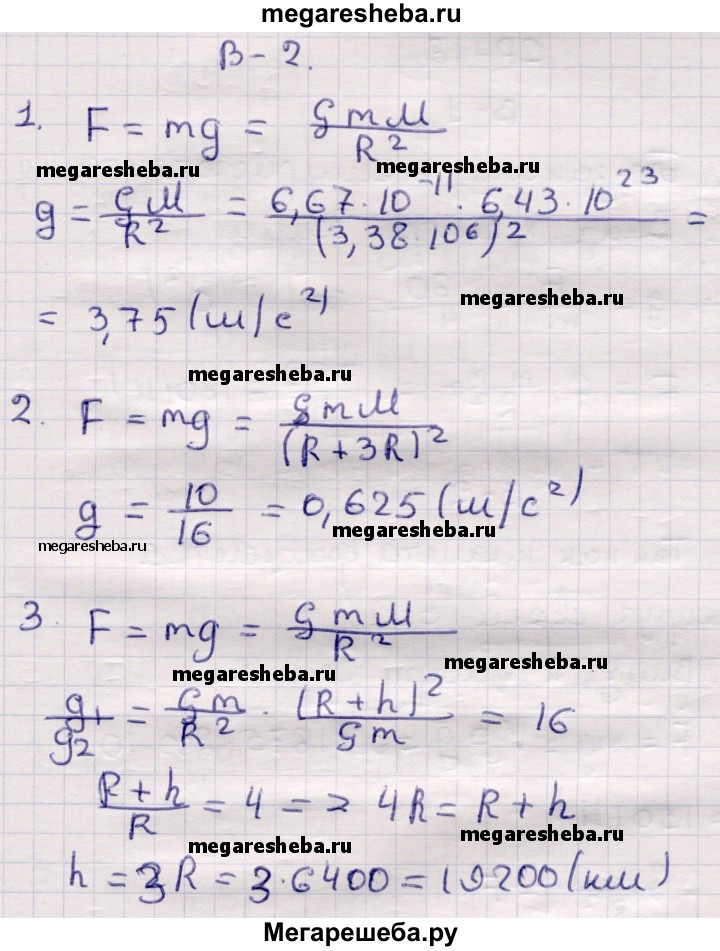 megaresheba.ru
В-2.
1. F = mg = GmM / R²
megaresheba.ru megaresheba.ru
g = GM / R² = 6,67·10⁻¹¹ · 6,43·10²³ / (3,38·10⁶)² =
megaresheba.ru
= 3,75 (м/с²)
megaresheba.ru
2. F = mg = GmM / (R+3R)²
g = 10 / 16 = 0,625 (м/с²)
megaresheba.ru
megaresheba.ru
3. F = mg = GmM / R²
megaresheba.ru megaresheba.ru
g₁ / g₂ = Gm / R² · (R+h)² / Gm = 16
R+h / R = 4 => 4R = R+h
megaresheba.ru megaresheba.ru
h = 3R = 3·6400 = 19200 (км)
Мегарешеба.ру